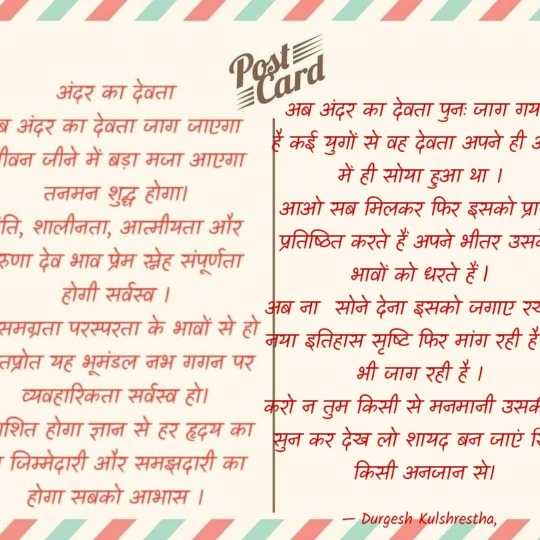 Post
Card
अंदर का देवता
अंदर का देवता जाग जाएगा
जीने में बड़ा मजा आएगा
तनमन शुद्ध होगा।
शालीनता, आत्मीयता और
देव भाव प्रेम स्नेह संपूर्णता
होगी सर्वस्व ।
समग्रता परस्परता के भावों से हो
यह भूमंडल नभ गगन पर
व्यवहारिकता सर्वस्व हो।
होगा ज्ञान से हर हृदय का
जिम्मेदारी और समझदारी का
होगा सबको आभास ।
अब अंदर का देवता पुनः जाग
है कई युगों से वह देवता अपने ही
में ही सोया हुआ था ।
आओ सब मिलकर फिर इसको
प्रतिष्ठित करते हैं अपने भीतर
भावों को धरते हैं ।
अब ना सोने देना इसको जगाए
नया इतिहास सृष्टि फिर मांग रही है
भी जाग रही है ।
करो न तुम किसी से मनमानी
सुन कर देख लो शायद बन जाएं
किसी अनजान से।
— Durgesh Kulshrestha,